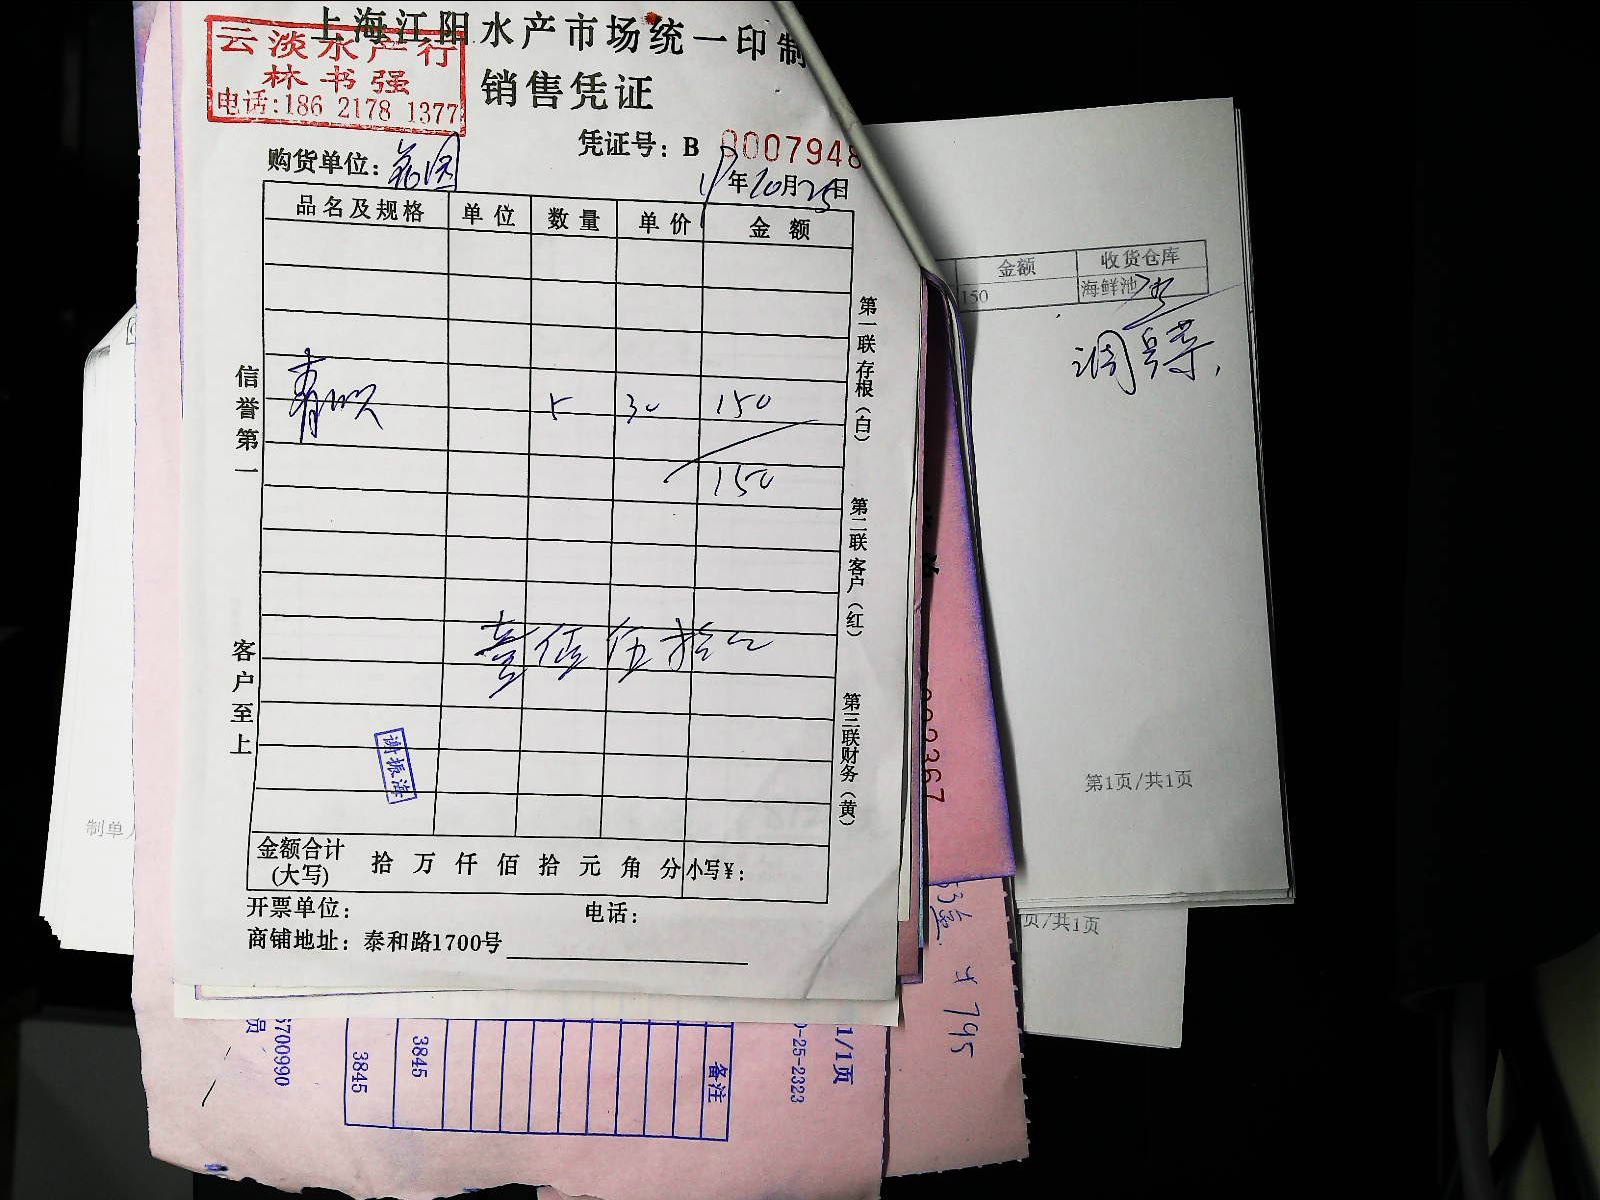 上海江阳水产市场统一印制
云淡水产行
林书强
电话:186 2178 1377
销售凭证
凭证号: B 0007948
购货单位:
年10月25日
品名及规格 单位 数量 单价 金额
5 30 150
150
壹佰伍拾元
谢振海
金额合计(大写) 拾 万 仟 佰 拾 元 角 分 小写¥:
开票单位: 电话:
商铺地址: 泰和路1700号
信誉第一
客户至上
第一联存根(白)
第二联客户(红)
第三联财务(黄)
金额 收货仓库
150 海鲜池
第1页/共1页
页/共1页
制单人
2367
795
1/1页
-25-2323
备注
3845
3845
5700990
员